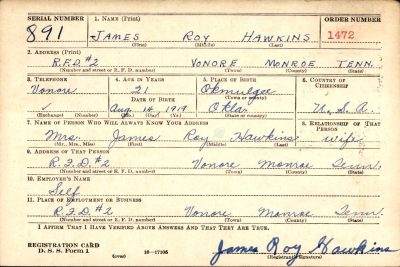 SERIAL NUMBER 1. NAME (Print) ORDER NUMBER
891 JAMES ROY HAWKINS 1472
(First) (Middle) (Last)
2. ADDRESS (Print)
R.F.D. #2 VONORE MONROE TENN.
(Number and street or R. F. D. number) (Town) (County) (State)
3. TELEPHONE 4. AGE IN YEARS 5. PLACE OF BIRTH 6. COUNTRY OF CITIZENSHIP
Vonore 21 Okmulgee
(Town or county)
DATE OF BIRTH
Aug. 14, 1919 Okla. U.S.A.
(Exchange) (Number) (Mo.) (Day) (Yr.) (State or country)
7. NAME OF PERSON WHO WILL ALWAYS KNOW YOUR ADDRESS 8. RELATIONSHIP OF THAT PERSON
Mrs. James Roy Hawkins wife
(Mr., Mrs., Miss) (First) (Middle) (Last)
9. ADDRESS OF THAT PERSON
R.F.D. #2 Vonore Monroe Tenn.
(Number and street or R. F. D. number) (Town) (County) (State)
10. EMPLOYER'S NAME
Self
11. PLACE OF EMPLOYMENT OR BUSINESS
R.F.D. #2 Vonore Monroe Tenn.
(Number and street or R. F. D. number) (Town) (County) (State)
I AFFIRM THAT I HAVE VERIFIED ABOVE ANSWERS AND THAT THEY ARE TRUE.
REGISTRATION CARD
D. S. S. Form 1 (over) 16—17105
James Roy Hawkins
(Registrant's signature)